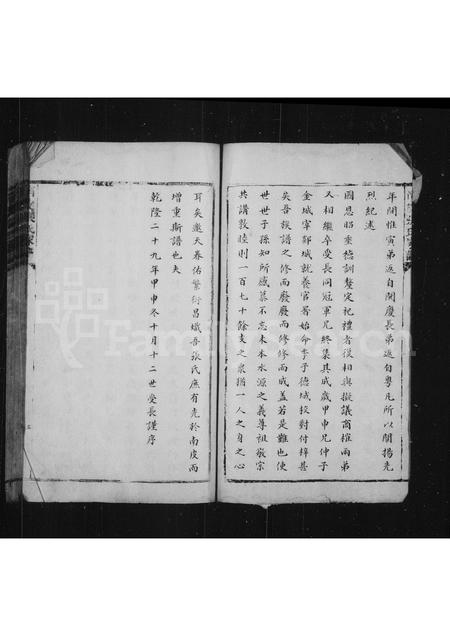 年間惟寅弟返自閩慶長弟返自粤凡所以闡揚先
烈紀述
國恩昭垂德訓釐定祀禮者復相與擬議商榷兩弟
又相繼卒受長問冠軍兄終集其成歲甲申兄仲子
金城宰鄰城就養官署始命季子德城校對付梓甚
矣吾族譜之修而廢廢而修修而成蓋若是難也使
世世子孫知所感慕不忘木本水源之義尊祖敬宗
共講敦睦則一百七十餘支之衆猶一人之身之心
耳矣邀天眷佑繁衍昌熾吾張氏庶有光於南皮而
增重斯譜也夫
乾隆二十九年甲申冬十月十二世受長謹序
FamilySearch